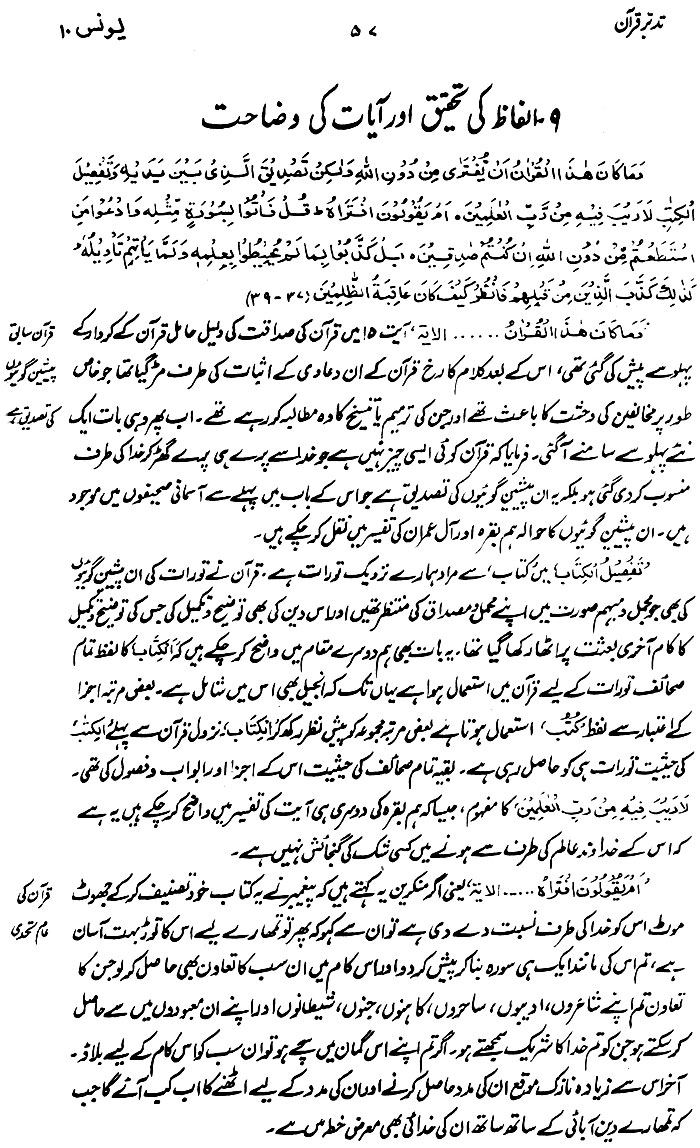 تدبر قرآن ۵۷ یونس ۱۰
۹۔ الفاظ کی تحقیق اور آیات کی وضاحت
وَمَا كَانَ هٰذَا الْقُرْاٰنُ اَنْ يُّفْتَرٰى مِنْ دُوْنِ اللهِ وَلٰكِنْ تَصْدِيْقَ الَّذِىْ بَيْنَ يَدَيْهِ وَتَفْصِيْلَ
الْكِتٰبِ لَا رَيْبَ فِيْهِ مِنْ رَّبِّ الْعٰلَمِيْنَ۔ اَمْ يَقُوْلُوْنَ افْتَرَاهُ ؕ قُلْ فَاْتُوْا بِسُوْرَةٍ مِّثْلِهٖ وَادْعُوْا مَنِ
اسْتَطَعْتُمْ مِّنْ دُوْنِ اللهِ اِنْ كُنْتُمْ صٰدِقِيْنَ۔ بَلْ كَذَّبُوْا بِمَا لَمْ يُحِيْطُوْا بِعِلْمِهٖ وَلَمَّا يَاْتِهِمْ تَاْوِيْلُهٗ ؕ
كَذٰلِكَ كَذَّبَ الَّذِيْنَ مِنْ قَبْلِهِمْ فَانْظُرْ كَيْفَ كَانَ عَاقِبَةُ الظّٰلِمِيْنَ (۳۷-۳۹)
’وَمَا كَانَ هٰذَا الْقُرْاٰنُ ...... الاٰیۃ‘، آیت ۱۵ میں قرآن کی صداقت کی دلیل حامل قرآن کے کردار کے
قرآن سابق
پہلو سے پیش کی گئی تھی، اس کے بعد کلام کا رخ قرآن کے ان دعاوی کے اثبات کی طرف مڑ گیا تھا جو خاص
پیشین گوئیوں
طور پر مخالفین کی وحشت کا باعث تھے اور جن کی ترمیم یا تنسیخ کا وہ مطالبہ کر رہے تھے۔ اب پھر وہی بات ایک
کی تصدیق ہے
نئے پہلو سے سامنے آ گئی۔ فرمایا کہ قرآن کوئی ایسی چیز نہیں ہے جو خدا سے پرے ہی پرے گھڑ کر خدا کی طرف
منسوب کر دی گئی ہو بلکہ یہ ان پیشین گوئیوں کی تصدیق ہے جو اس کے باب میں پہلے سے آسمانی صحیفوں میں موجود
ہیں۔ ان پیشین گوئیوں کا حوالہ ہم بقرہ اور آل عمران کی تفسیر میں نقل کر چکے ہیں۔
’تَفْصِيْلَ الْكِتَابِ‘ میں ’کتاب‘ سے مراد ہمارے نزدیک تورات ہے۔ قرآن نے تورات کی ان پیشین گوئیوں
کی بھی جو مجمل و مبہم صورت میں اپنے محمل و مصداق کی منتظر تھیں اور اس دین کی بھی توضیح و تکمیل کی جس کی توضیح و تکمیل
کا کام آخری بعثت پر اٹھا رکھا گیا تھا۔ یہ بات بھی ہم دوسرے مقام میں واضح کر چکے ہیں کہ ’الکتاب‘ کا لفظ تمام
صحائف تورات کے لیے قرآن میں استعمال ہوا ہے یہاں تک کہ انجیل بھی اس میں شامل ہے۔ بعض مرتبہ اجزا
کے اعتبار سے لفظ ’کُتُب‘ استعمال ہوتا ہے بعض مرتبہ مجموعہ کو پیش نظر رکھ کر ’الکتاب‘، نزول قرآن سے پہلے ’الکتٰب‘
کی حیثیت تورات ہی کو حاصل رہی ہے۔ بقیہ تمام صحائف کی حیثیت اس کے اجزا اور ابواب و فصول کی تھی۔
’لَا رَيْبَ فِيْهِ مِنْ رَّبِّ الْعٰلَمِيْنَ‘ کا مفہوم، جیسا کہ ہم بقرہ کی دوسری ہی آیت کی تفسیر میں واضح کر چکے ہیں یہ ہے
کہ اس کے خداوند عالم کی طرف سے ہونے میں کسی شک کی گنجائش نہیں ہے۔
’اَمْ يَقُوْلُوْنَ افْتَرَاهُ ...... الاٰیۃ‘ یعنی اگر منکرین یہ کہتے ہیں کہ پیغمبر نے یہ کتاب خود تصنیف کر کے جھوٹ
قرآن کی
موٹ اس کو خدا کی طرف نسبت دے دی ہے تو ان سے کہو کہ پھر تو تمھارے لیے اس کا توڑ بہت آسان
عام تحدی
ہے، تم اس کی مانند ایک ہی سورہ بنا کر پیش کر دو اور اس کام میں ان سب کا تعاون بھی حاصل کر لو جن کا
تعاون تم اپنے شاعروں، ادیبوں، ساحروں، کاہنوں، جنوں، شیطانوں اور اپنے ان معبودوں میں سے حاصل
کر سکتے ہو جن کو تم خدا کا شریک سمجھتے ہو۔ اگر تم اپنے اس گمان میں سچے ہو تو ان سب کو اس کام کے لیے بلاؤ۔
آخر اس سے زیادہ نازک موقع ان کی مدد حاصل کرنے اور ان کی مدد کے لیے اٹھنے کا اب کب آئے گا جب
کہ تمھارے دین آبائی کے ساتھ ساتھ ان کی خدائی بھی معرض خطر میں ہے۔